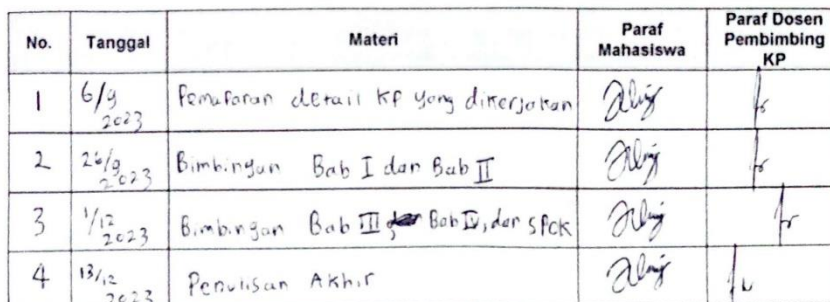 No. Tanggal Materi Paraf Mahasiswa Paraf Dosen Pembimbing KP
1 6/9 2023 Pemaparan detail KP yang dikerjakan
2 26/9 2023 Bimbingan Bab I dan Bab II
3 1/12 2023 Bimbingan Bab III, Bab IV, dan SPCK
4 13/12 2023 Penulisan Akhir